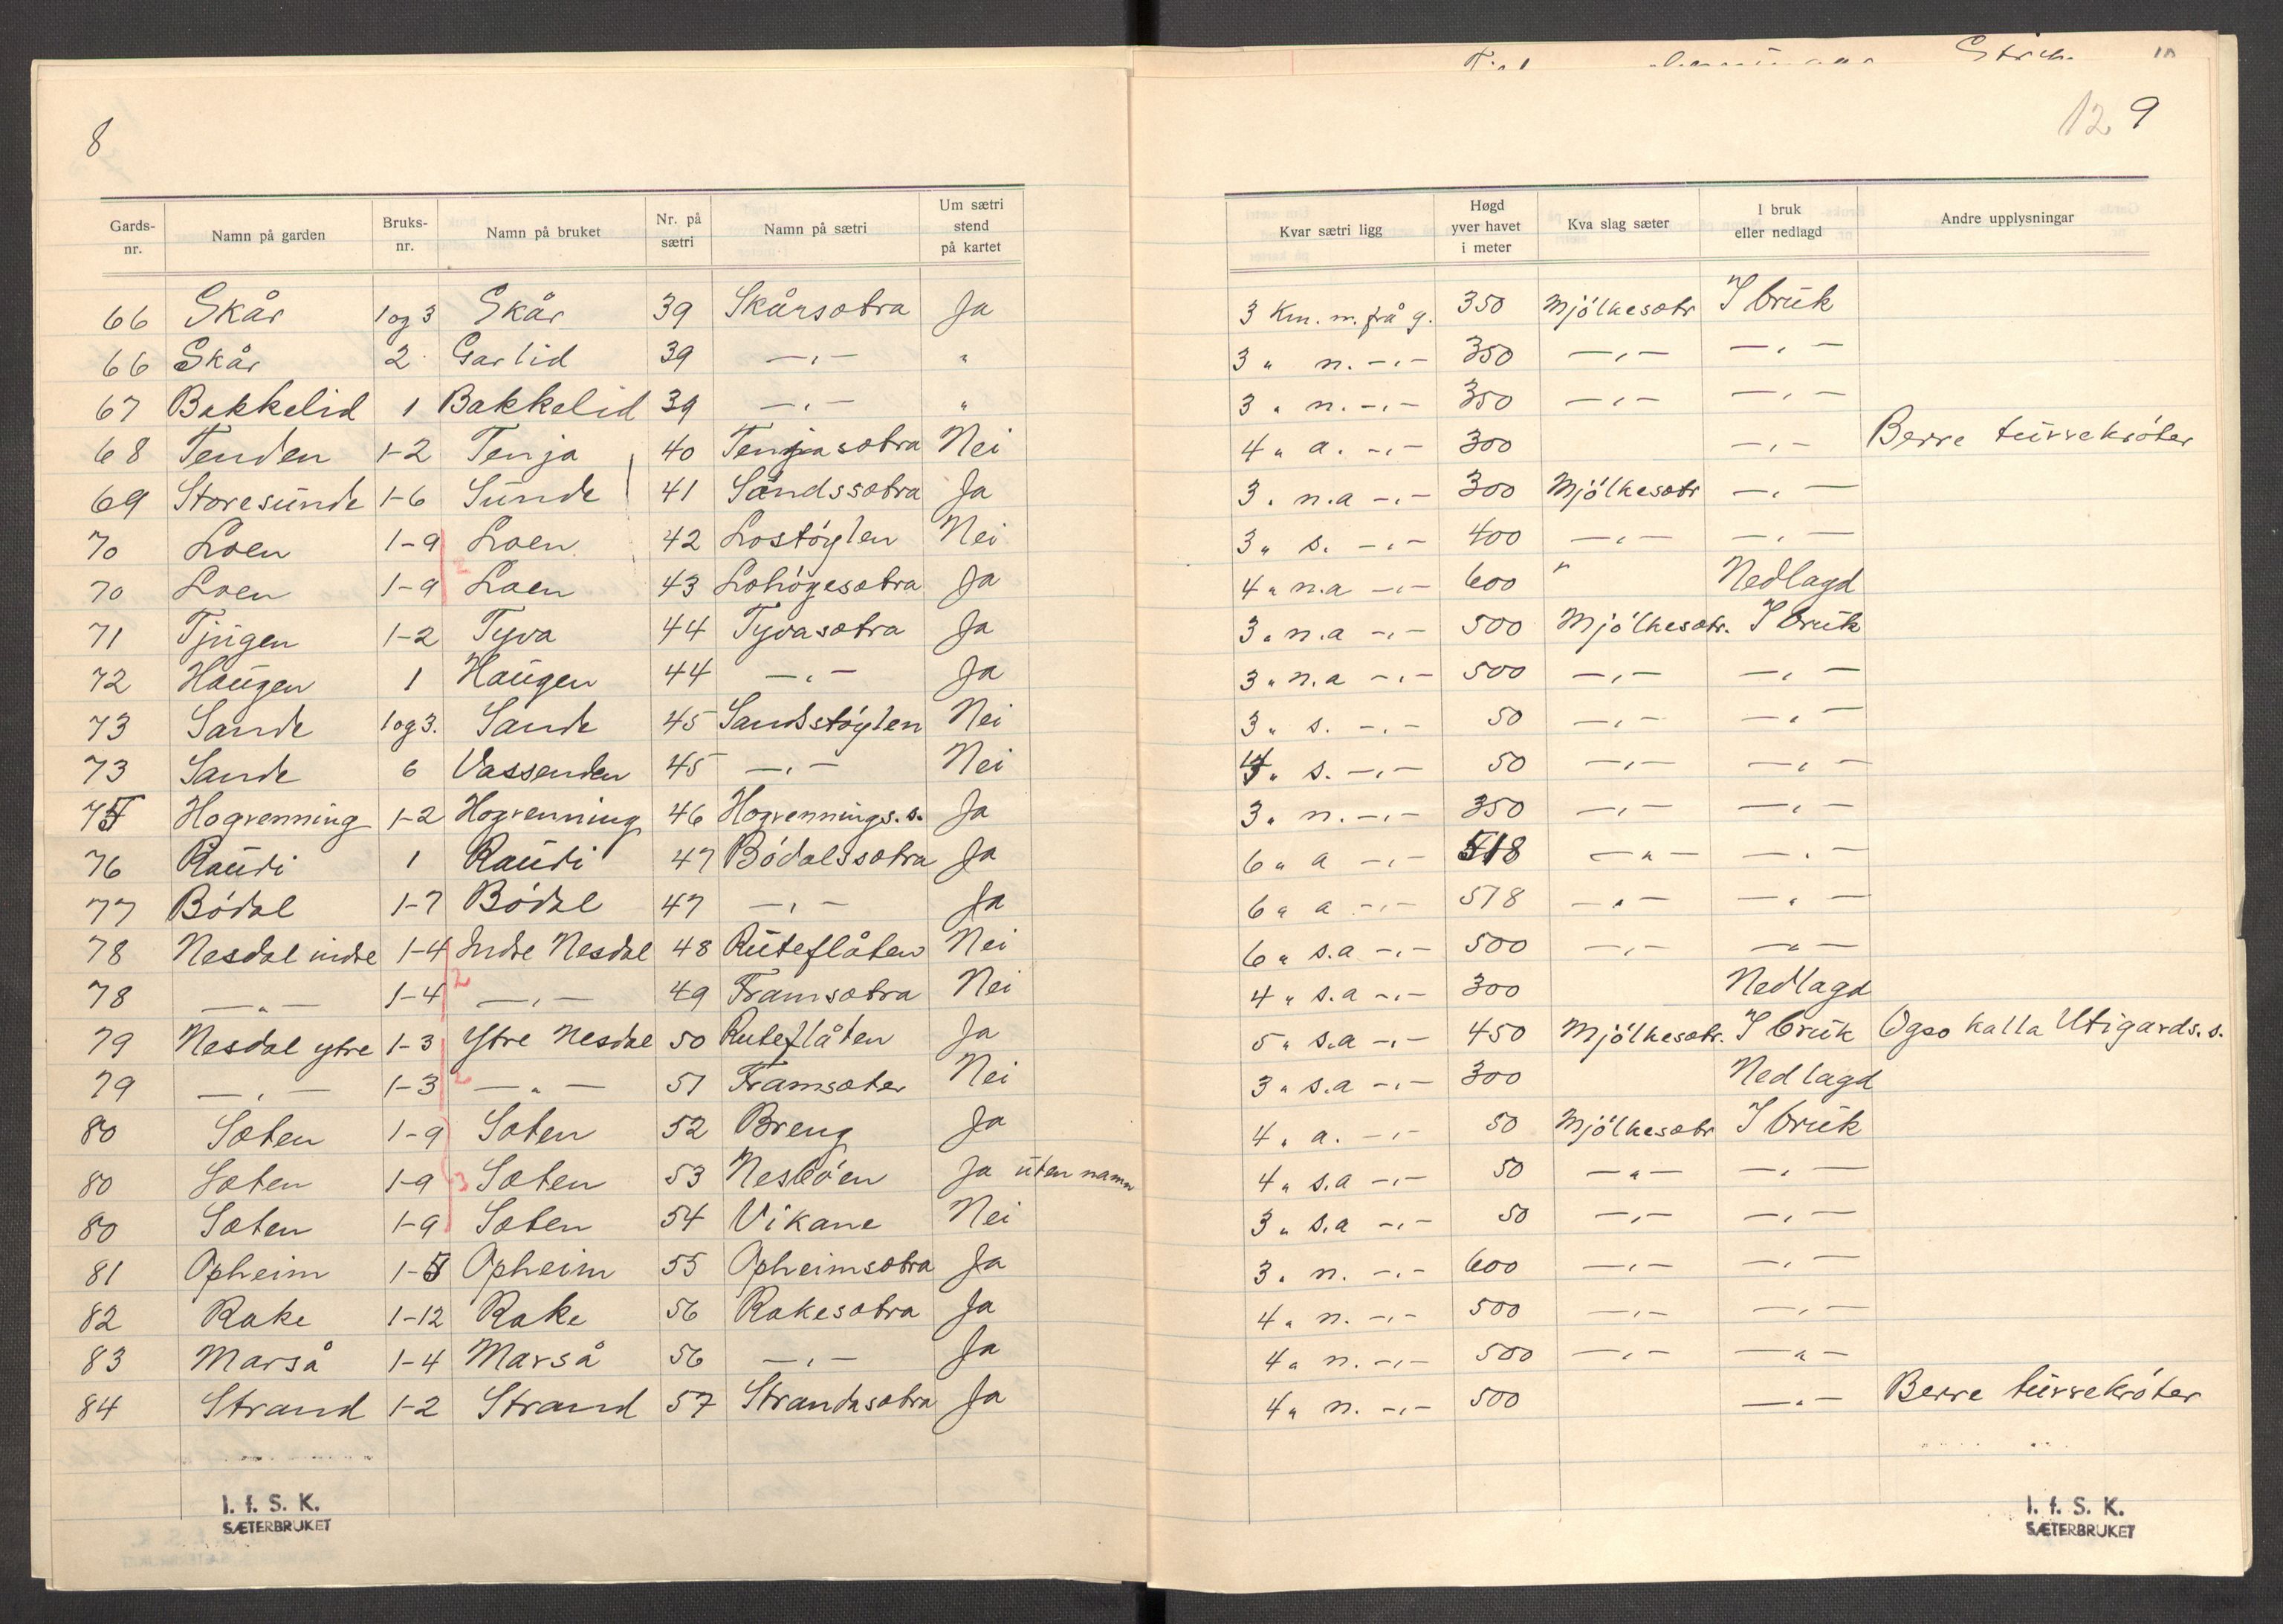 8
Gards-nr. Namn på garden Bruks-nr. Namn på bruket Nr. på sætri Namn på sætri Um sætri stend på kartet
66 Skår 1 og 3 Skår 39 Skårsætra Ja
66 Skår 2. Garlid 39 -„- „
67 Bakkelid 1 Bakkelid 39 -„- „
68 Tenden 1-2 Tenja 40 Tenjasætra Nei
69 Storesunde 1-6 Sunde 41 Sandssætra Ja
70 Loen 1-9 Loen 42 Lostöylen Nei
70 Loen 1-9 2 Loen 43 Lohögesætra Ja
71 Tjugen 1-2 Tyva 44 Tyvasætra Ja
72 Haugen 1 Haugen 44 -„- Ja
73 Sande 1 og 3. Sande 45 Sandstöylen Nei
73 Sande 6 Vassenden 45 -„- Nei
75 Hogrenning 1-2 Hogrenning 46 Hogrennings.s. Ja
76 Raudi 1 Raudi 47 Bödalssætra Ja
77 Bödal 1-7 Bödal 47 -„- Ja
78 Nesdal indre 1-4 Indre Nesdal 48 Ruteflåten Nei
78 -„- 1-4 2 -„- 49 Framsætra Nei
79 Nesdal ytre 1-3 Ytre Nesdal 50 Ruteflåten Ja
79 -„- 1-3 2 -„- 51 Framsæter Nei
80 Sæten 1-9 Sæten 52 Breng Ja
80 Sæten 1-9 3 Sæten 53 Nesböen Ja uten namn
80 Sæten 1-9 Sæten 54 Vikane Nei
81 Opheim 1-5 Opheim 55 Opheimsætra Ja
82 Rake 1-12 Rake 56 Rakesætra Ja
83 Marså 1-4 Marså 56 -„- Ja
84 Strand 1-2 Strand 57 Strandasætra Ja
I. f. S. K.
SÆTERBRUKET
12 9
Kvar sætri ligg Høgd yver havet i meter Kva slag sæter I bruk eller nedlagd Andre upplysningar
3 Km. n. frå g. 350 Mjölkesætr I bruk
3 „ n. -„- 350 -„- -„-
3 „ n. -„- 350 -„- -„-
4 „ a. -„- 300 -„- Berre turrekröter
3 „ n.a -„- 300 Mjölkesætr -„-
3 „ s. -„- 400 -„- -„-
4 „ n.a -„- 600 „ Nedlagd
3 „ n.a -„- 500 Mjölkesætr. I bruk
3 „ n.a -„- 500 -„- -„-
3 „ s. -„- 50 -„- -„-
4 „ s. -„- 50 -„- -„-
3 „ n. -„- 350 -„- -„-
6 „ a -„- 518 -„- -„-
6 „ a -„- 518 -„- -„-
6 „ s.a -„- 500 -„- -„-
4 „ s.a -„- 300 Nedlagd
5 „ s.a -„- 450 Mjölkesætr. I bruk Ogso kalla Utigards.s.
3 „ s.a -„- 300 Nedlagd
4 „ a. -„- 50 Mjölkesætr I bruk
4 „ s.a -„- 50 -„- -„-
3 „ s.a -„- 50 -„- -„-
3 „ n. -„- 600 -„- -„-
4 „ n. -„- 500 -„- -„-
4 „ n. -„- 500 -„- -„-
4 „ n. -„- 500 -„- Berre turrekröter
I. f. S. K.
SÆTERBRUKET